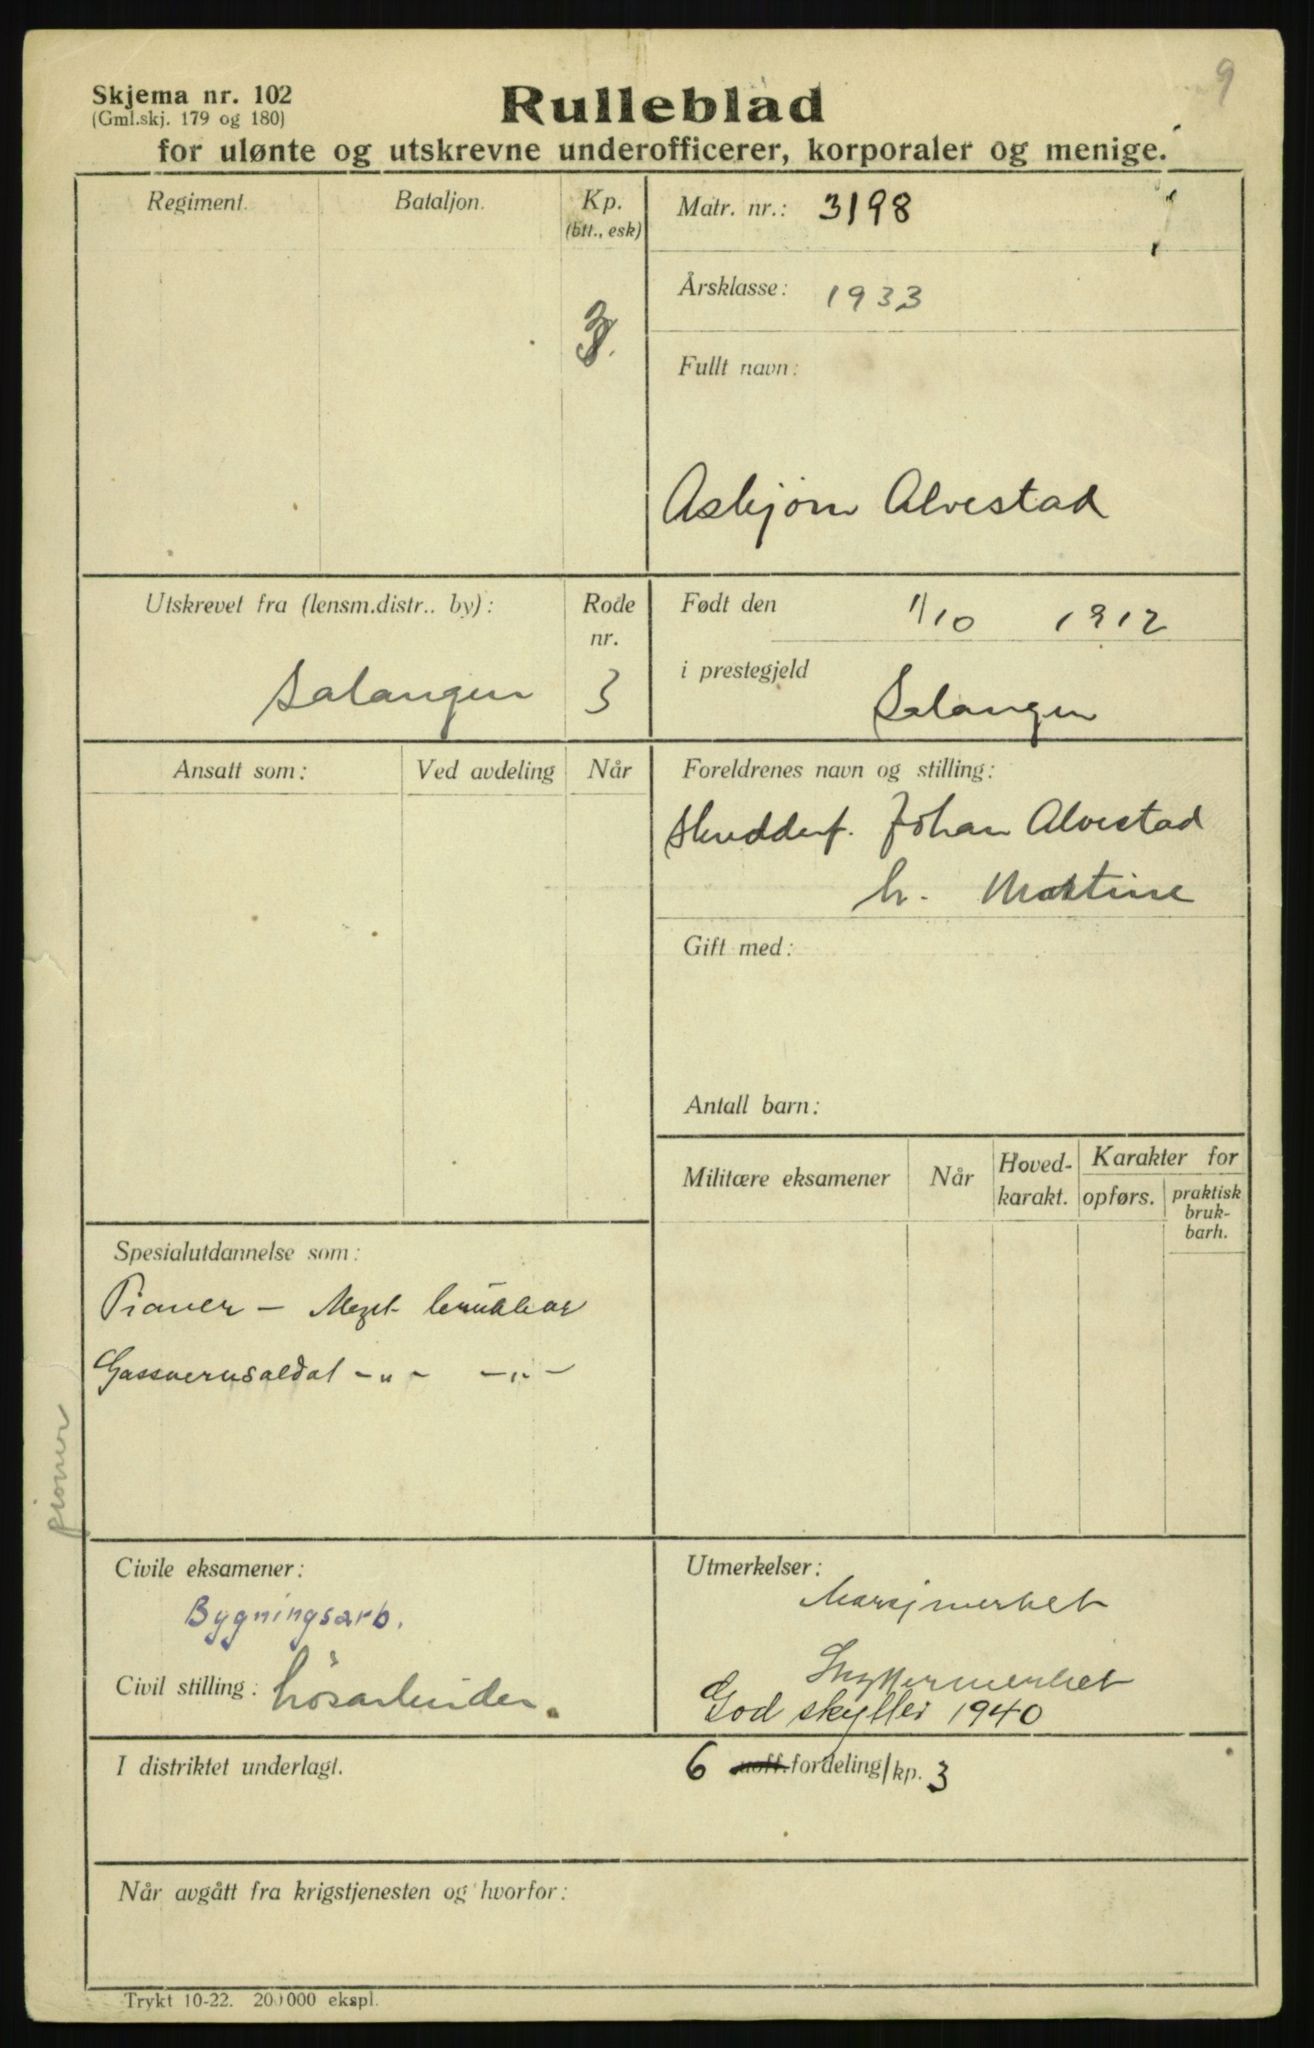 9
Skjema nr. 102
(Gml.skj. 179 og 180)
Rulleblad
for ulønte og utskrevne underofficerer, korporaler og menige.
Regiment.
Bataljon.
Kp.
(btt., esk)
3.
Matr. nr.: 3198
Årsklasse: 1933
Fullt navn:
Asbjørn Alvestad
Utskrevet fra (lensm.distr.. by):
Salangen
Rode
nr.
3
Født den 1/10 1912
i prestegjeld
Salangen
Ansatt som:
Ved avdeling
Når
Foreldrenes navn og stilling:
Skredderf. Johan Alvestad
h. Martine
Gift med:
Antall barn:
Militære eksamener
Når
Hoved-
karakt.
Karakter for
opførs.
praktisk
bruk-
barh.
Spesialutdannelse som:
Pioner – Meget brukbar
Gassvernsoldat -„- -„-
pioner
Civile eksamener:
Bygningsarb.
Civil stilling: Løsarbeider.
Utmerkelser:
Marsjmerket
Skyttermerket
God skytter 1940
I distriktet underlagt.
6 uoff. fordeling/kp. 3
Når avgått fra krigstjenesten og hvorfor:
Trykt 10-22. 200000 ekspl.